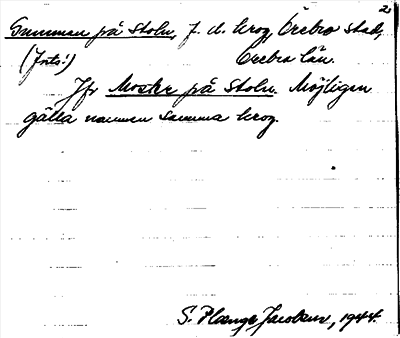 2
Gumman på Stolen, f. d. krog, Örebro stad,
(Forts!) Örebro län.
Jfr Moster på Stolen. Möjligen
gälla namnen samma krog.
S. Plænge Jacobson, 1944.